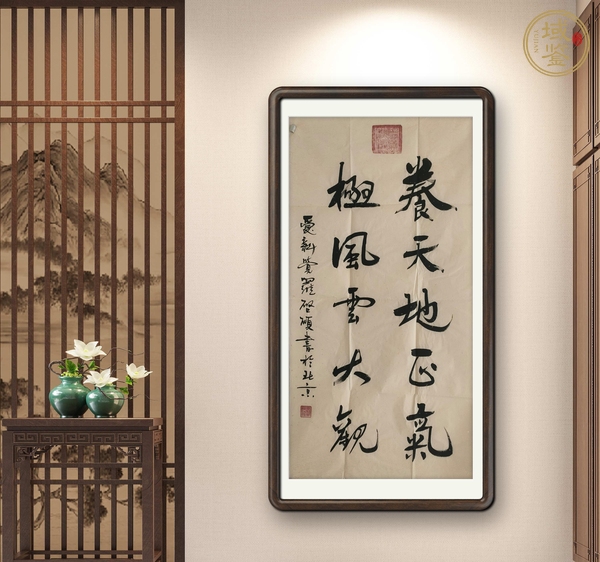 養天地正氣
極風雲大觀
愛新覺羅啓碩書於北京
域鉴
YUJIAN